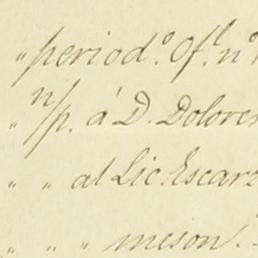 " period.º Of.l n.º
" n/p. á D. Dolores
" " al Lic. Escarz
" " " meson.